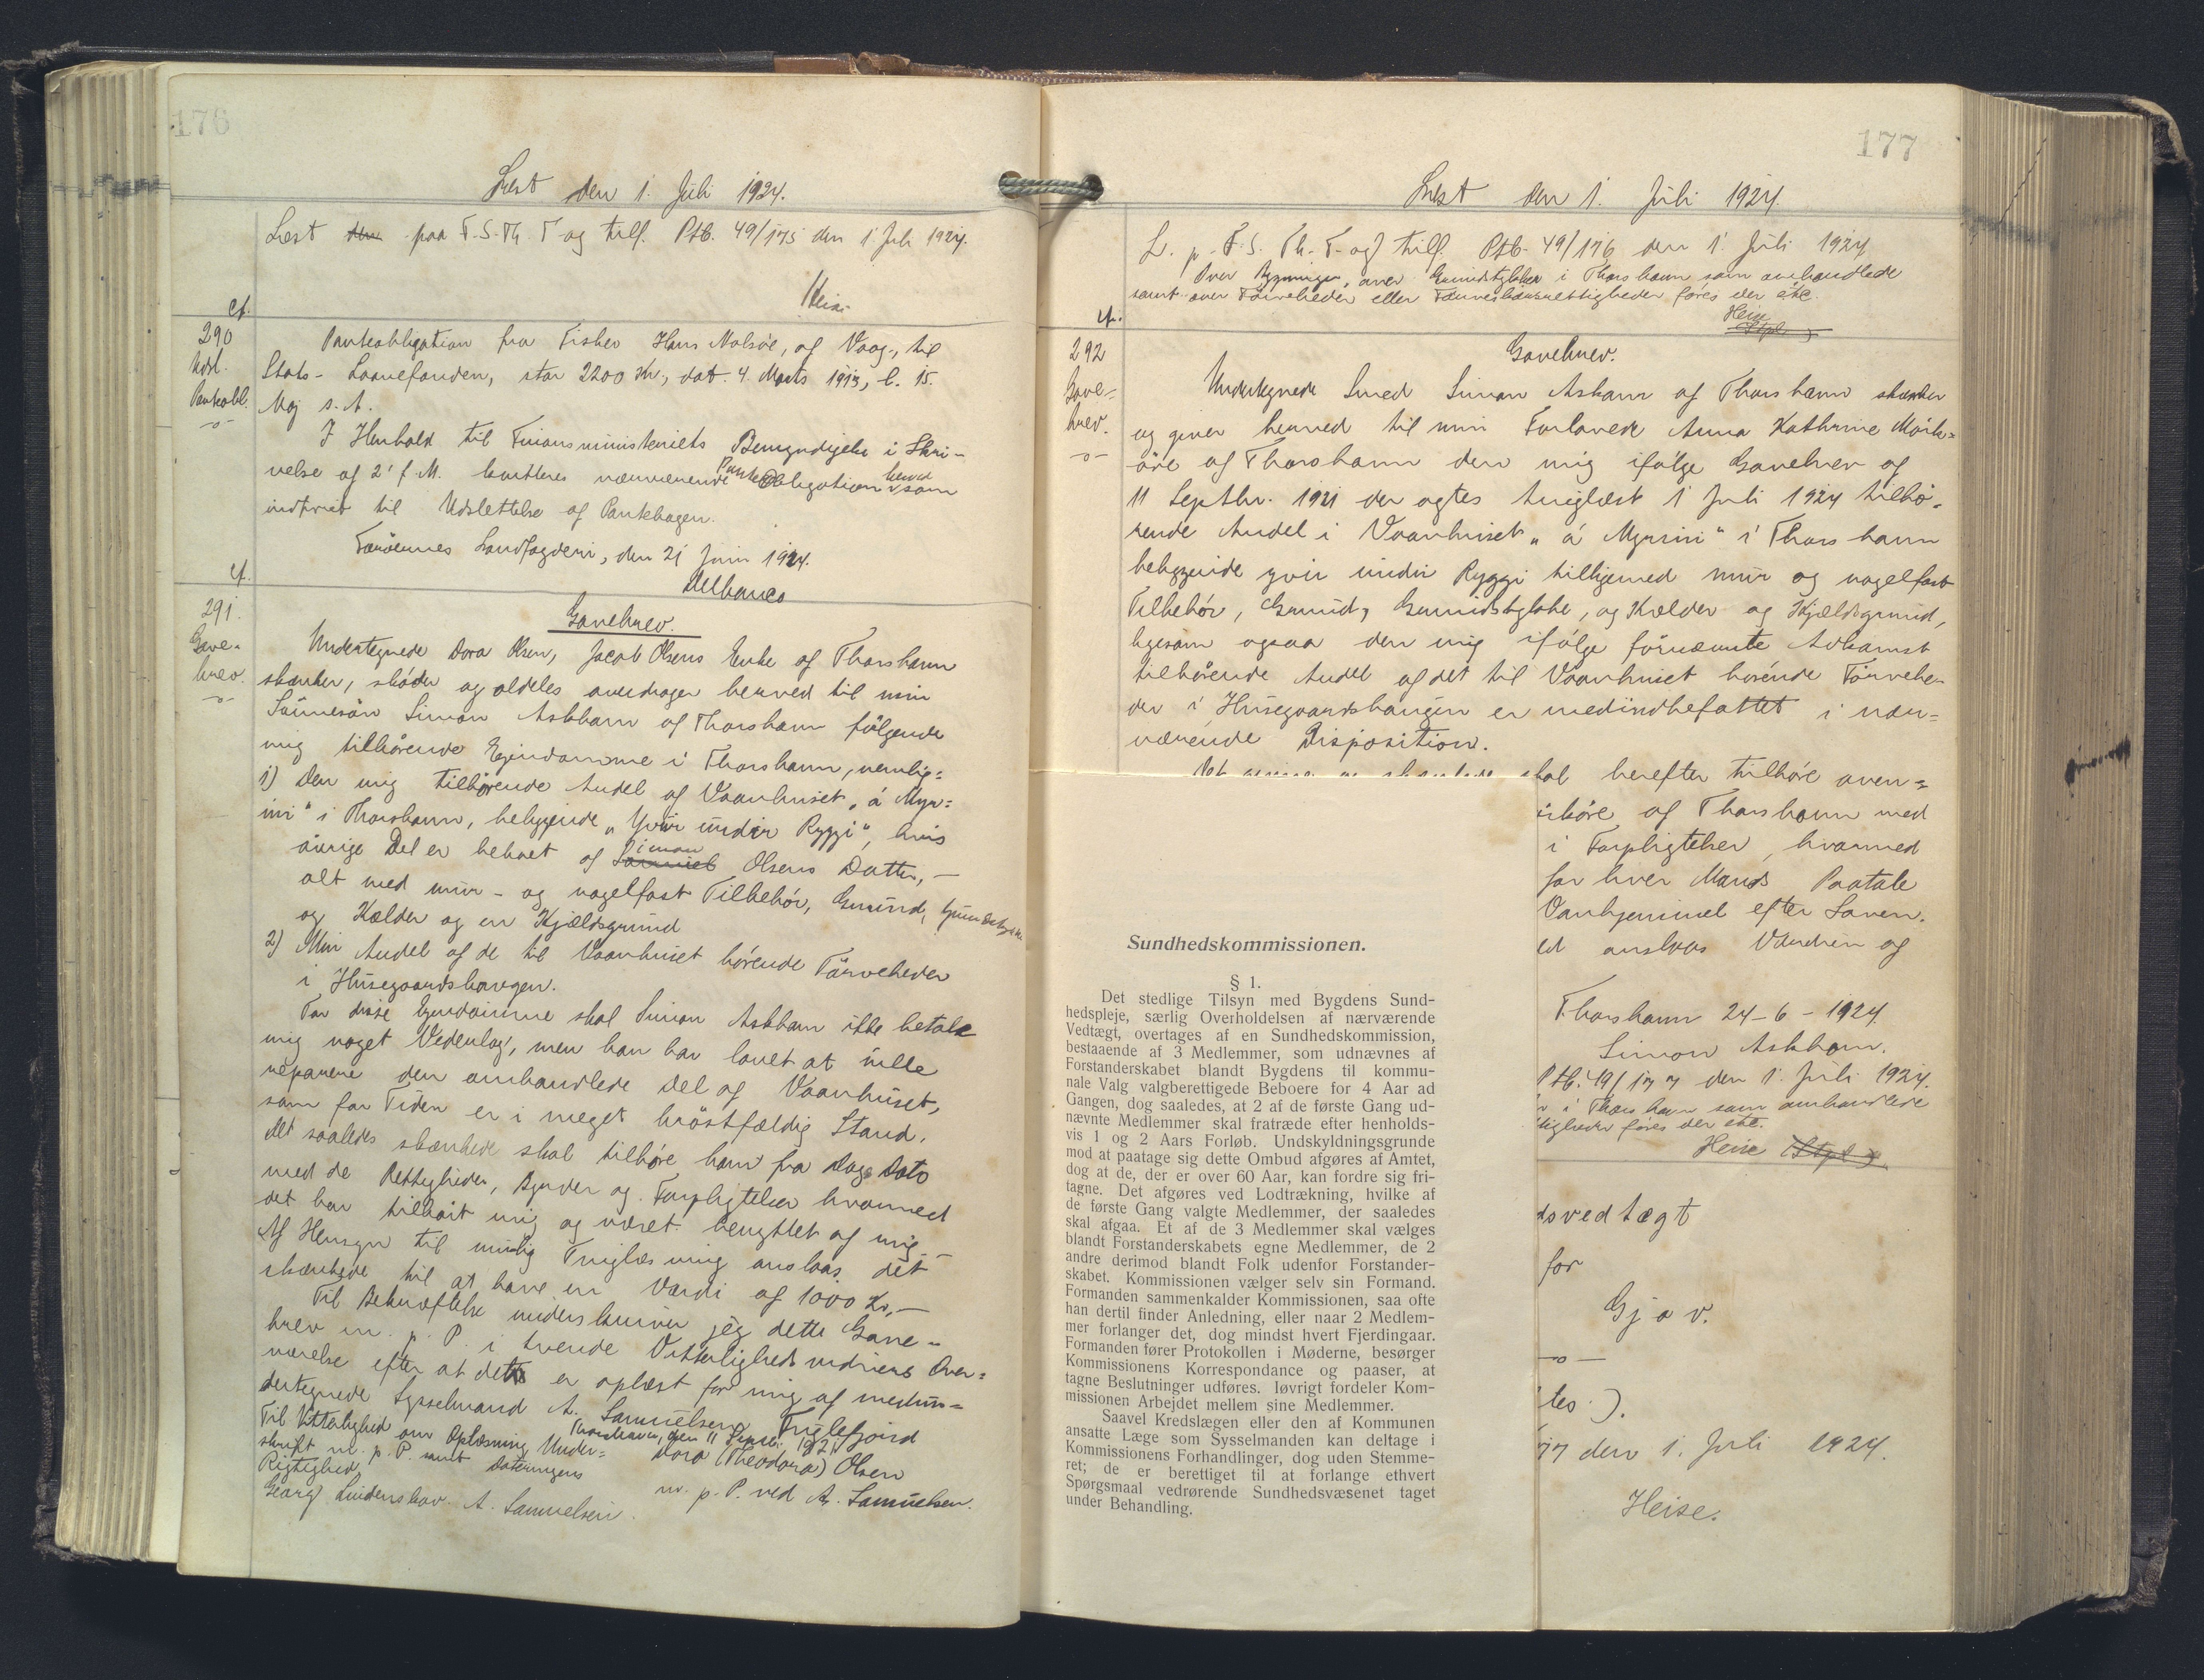 176
Læst den 1. Juli 1924.
Læst den paa F. S. Th. T og tilf. Ptb. 49/175 den 1 Juli 1924.
Heise
cf.
290
Udsl.
Panteobl.
-o-
Panteobligation fra Fisker Hans Nolsöe, af Vaag, til
Stats-Laanefonden, stor 2200 Kr., dat. 4. Marts 1913, l. 15.
Maj s. A.
I Henhold til Finansministeriets Bemyndigelse i Skri-
velse af 2' f. M. kvitteres nærværende Panteobligation herved som
indfriet til Udslettelse af Pantebogen.
Færöernes Landfogderi, den 21 Juni 1924.
cf.
291.
Gave-
brev.
-o-
Gavebrev.
Undertegnede Dora Olsen, Jacob Olsens Enke af Thorshavn
skænker, sköder og aldeles overdrager herved til min
Sönnesön Simon Askham af Thorshavn fölgende
mig tilhörende Ejendomme i Thorshavn, nemlig:
1) Den mig tilhörende Andel af Vaanhuset „á Myr=
ini" i Thorshavn, beliggende „Yvir undir Ryggi", hvis
övrige Del er beboet af Simon Olsens Datter, —
alt med mur- og nagelfast Tilbehör, Grund, Grundstykke
og Kælder og en Kjældsgrund
2) Min Andel af de til Vaanhuset hörende Törveheder
i Husegaardshavgen.
For disse Ejendomme skal Simon Askham ikke betale
mig noget Vederlag, men han har lovet at ville
reparere den omhandlede Del af Vaanhuset,
som for Tiden er i meget bröstfældig Stand.
Det saaledes skænkede skal tilhöre ham fra Dags Dato
med de Rettigheder, Byrder og Forpligtelser hvormed
det har tilhört mig og været benyttet af mig. —
Af Hensyn til mulig Tinglæsning anslaas det
skænkede til at have en Værdi af 1000 Kr. —
Til Bekræftelse underskriver jeg dette Gave-
brev m. p. P. i tvende Vitterlighedsvidners Over=
værelse efter at dette er oplæst for mig af medun=
dertegnede Sysselmand A. Samuelsen Fuglefjord
Thorshavn, den 11 Septbr. 1921
Til Vitterlighed om Oplæsning, Under=
skrift m. p. P. samt Dateringens
Rigtighed
Dora (Theodora) Olsen
m. p. P. ved A. Samuelsen.
Georg Lindenskov. A. Samuelsen.
177
Læst den 1. Juli 1924.
L. p. F. S. Th. T. og tilf. Ptb. 49/176 den 1' Juli 1924
Over Bygninger, over Grundstykker i Thorshavn som omhandlede
samt over Törveheder eller Törveskæringsrettigheder föres der ikke.
Heise
(Stpl.)
cf.
292
Gave-
brev.
-o-
Gavebrev.
Undertegnede Smed Simon Askham af Thorshavn skænker
og giver herved til min Forlovede Anna Kathrine Mörk=
öre af Thorshavn den mig ifölge Gavebrev af
11 Septbr. 1921 der agtes tinglæst 1 Juli 1924 tilhö-
rende Andel i Vaanhuset „á Myrini" i Thorshavn
beliggende yvir undir Ryggi tilligemed mur og nagelfast
Tilbehör, Grund, Grundstykke, og Kælder og Kjældsgrund,
ligesom ogsaa den mig ifölge fornævnte Adkomst
tilhörende Andel af det til Vaanhuset hörende Törvehe-
der i Husegaardshaugen er medindbefattet i nær=
værende Disposition.
skal herefter tilhöre oven=
rköre af Thorshavn med
i Forpligtelser, hvormed
for hver Mands Paatale
Vanhjemmel efter Loven.
ed anslaas Værdien og
Thorshavn 24-6-1924.
Simon Askham.
Ptb. 49/177 den 1. Juli 1924.
r i Thorshavn som omhandlede
tigheder föres der ikke.
Heise (Stpl.)
dsvedtægt
for
Gjov.
—o—
tes).
77 den 1. Juli 1924.
Heise.
Sundhedskommissionen.
§ 1.
Det stedlige Tilsyn med Bygdens Sund-
hedspleje, særlig Overholdelsen af nærværende
Vedtægt, overtages af en Sundhedskommission,
bestaaende af 3 Medlemmer, som udnævnes af
Forstanderskabet blandt Bygdens til kommu-
nale Valg valgberettigede Beboere for 4 Aar ad
Gangen, dog saaledes, at 2 af de første Gang ud-
nævnte Medlemmer skal fratræde efter henholds-
vis 1 og 2 Aars Forløb. Undskyldningsgrunde
mod at paatage sig dette Ombud afgøres af Amtet,
dog at de, der er over 60 Aar, kan fordre sig fri-
tagne. Det afgøres ved Lodtrækning, hvilke af
de første Gang valgte Medlemmer, der saaledes
skal afgaa. Et af de 3 Medlemmer skal vælges
blandt Forstanderskabets egne Medlemmer, de 2
andre derimod blandt Folk udenfor Forstander-
skabet. Kommissionen vælger selv sin Formand.
Formanden sammenkalder Kommissionen, saa ofte
han dertil finder Anledning, eller naar 2 Medlem-
mer forlanger det, dog mindst hvert Fjerdingaar.
Formanden fører Protokollen i Møderne, besørger
Kommissionens Korrespondance og paaser, at
tagne Beslutninger udføres. Iøvrigt fordeler Kom-
missionen Arbejdet mellem sine Medlemmer.
Saavel Kredslægen eller den af Kommunen
ansatte Læge som Sysselmanden kan deltage i
Kommissionens Forhandlinger, dog uden Stemme-
ret; de er berettiget til at forlange ethvert
Spørgsmaal vedrørende Sundhedsvæsenet taget
under Behandling.